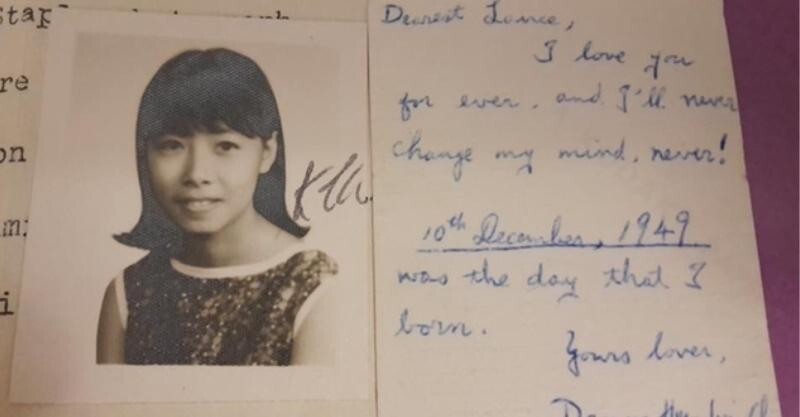 re
on
Dearest Lance,
I love you
for ever, and I'll never
change my mind, never!
10th December, 1949
was the day that I
born.
Yours lover,